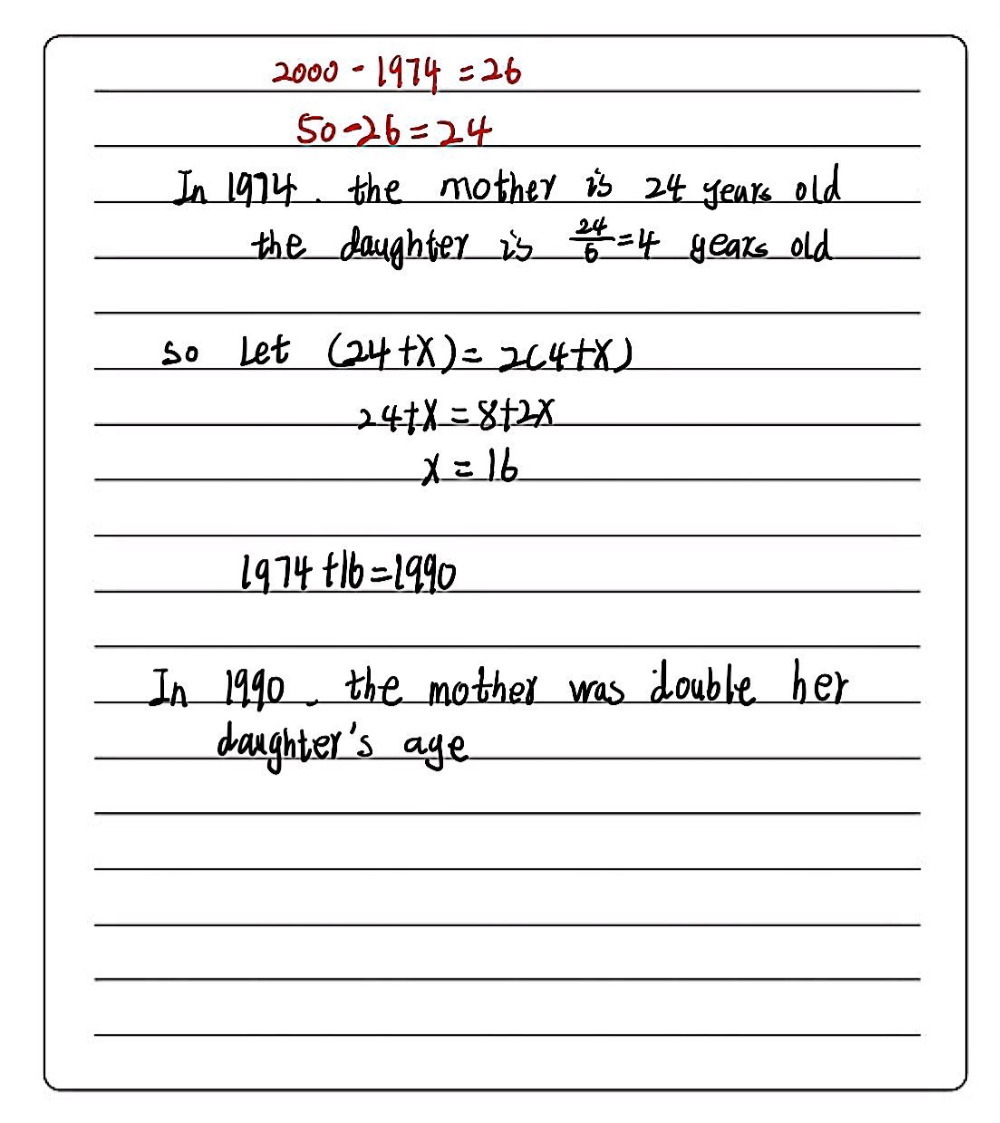 2000 - 1974 = 26
50-26=24
In 1974. the mother is 24 years old
the daughter is 24/6=4 years old
so Let (24+X)= 2(4+X)
24+X=8+2X
X = 16
1974+16=1990
In 1990, the mother was double her
daughter's age